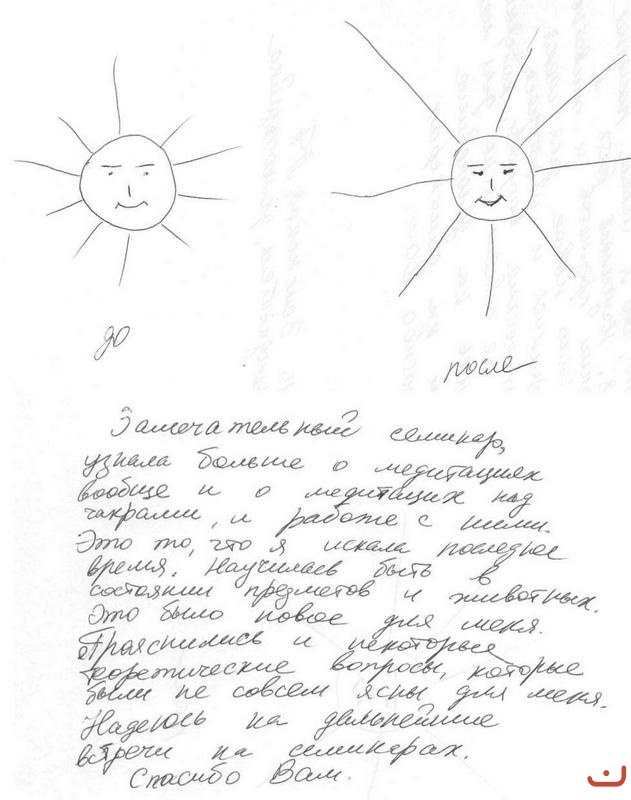 до
после
Замечательный семинар,
узнала больше о медитациях
вообще и о медитациях над
чакрами, и работе с ними.
Это то, что я искала последнее
время. Научилась быть в
состоянии предметов и животных.
Это было новое для меня.
Прояснились и некоторые
теоретические вопросы, которые
были не совсем ясны для меня.
Надеюсь на дальнейшие
встречи на семинарах.
Спасибо Вам.